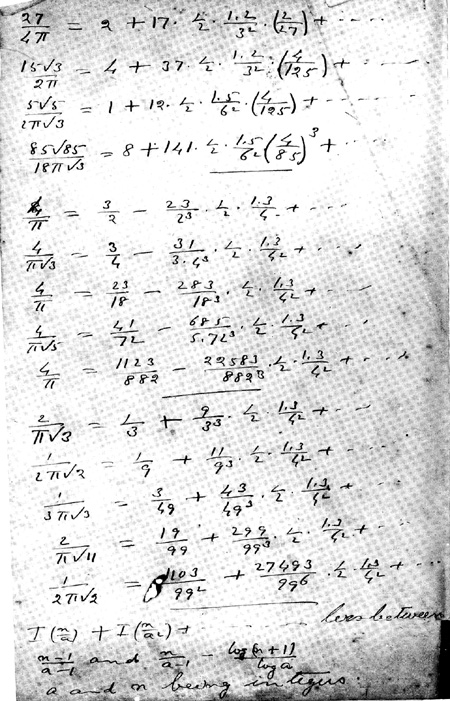 27/4π = 2 + 17 · 1/2 · 1.2/3² · (2/27) + · · · ·
15√3/2π = 4 + 37 · 1/2 · 1.2/3² · (4/125) + · · · ·
5√5/2π√3 = 1 + 12 · 1/2 · 1.5/6² · (4/125) + · · · ·
85√85/18π√3 = 8 + 141 · 1/2 · 1.5/6² (4/85)³ + · · ·
4/π = 3/2 − 23/2³ · 1/2 · 1.3/4² + · · · ·
4/π√3 = 3/4 − 31/3.4³ · 1/2 · 1.3/4² + · · · ·
4/π = 23/18 − 283/18³ · 1/2 · 1.3/4² + · · · ·
4/π√5 = 41/72 − 685/5.72³ · 1/2 · 1.3/4² + · · ·
4/π = 1123/882 − 22583/882³ · 1/2 · 1.3/4² + · · · ·
2/π√3 = 1/3 + 9/3³ · 1/2 · 1.3/4² + · · ·
1/2π√2 = 1/9 + 11/9³ · 1/2 · 1.3/4² + · · ·
1/3π√3 = 3/49 + 43/49³ · 1/2 · 1.3/4² + · · ·
2/π√11 = 19/99 + 299/99³ · 1/2 · 1.3/4² + · · ·
1/2π√2 = 1103/99² + 27493/99⁶ · 1/2 · 1.3/4² + · · ·
I(n/a) + I(n/a²) + · · · · lies between
n−1/a−1 and n/a−1 − log(n+1)/log a
a and n being integers.